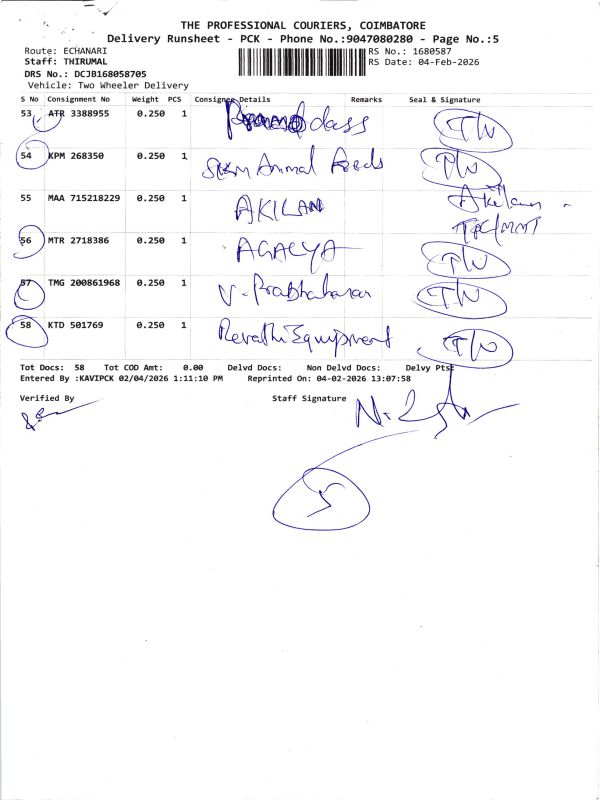 THE PROFESSIONAL COURIERS, COIMBATORE
Delivery Runsheet - PCK - Phone No.:9047080280 - Page No.:5
Route: ECHANARI
Staff: THIRUMAL
DRS No.: DCJB168058705
Vehicle: Two Wheeler Delivery
RS No.: 1680587
RS Date: 04-Feb-2026
S No Consignment No Weight PCS Consignee Details Remarks Seal & Signature
53 ATR 3388955 0.250 1 class
54 KPM 268350 0.250 1 SKM Animal Feeds
55 MAA 715218229 0.250 1 AKILAN Akilan
56 MTR 2718386 0.250 1 AGALYA
57 TMG 200861968 0.250 1 V. Prabhakaran
58 KTD 501769 0.250 1 Revathi Equipment
Tot Docs: 58 Tot COD Amt: 0.00 Delvd Docs: Non Delvd Docs: Delvy Pts:
Entered By :KAVIPCK 02/04/2026 1:11:10 PM Reprinted On: 04-02-2026 13:07:58
Verified By Staff Signature
5